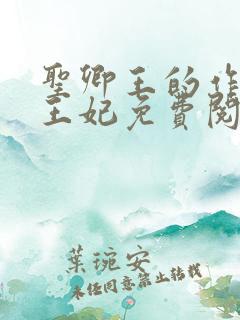 聖卿王的作
王妃免費閱
葉琬安
未經同意禁止轉載